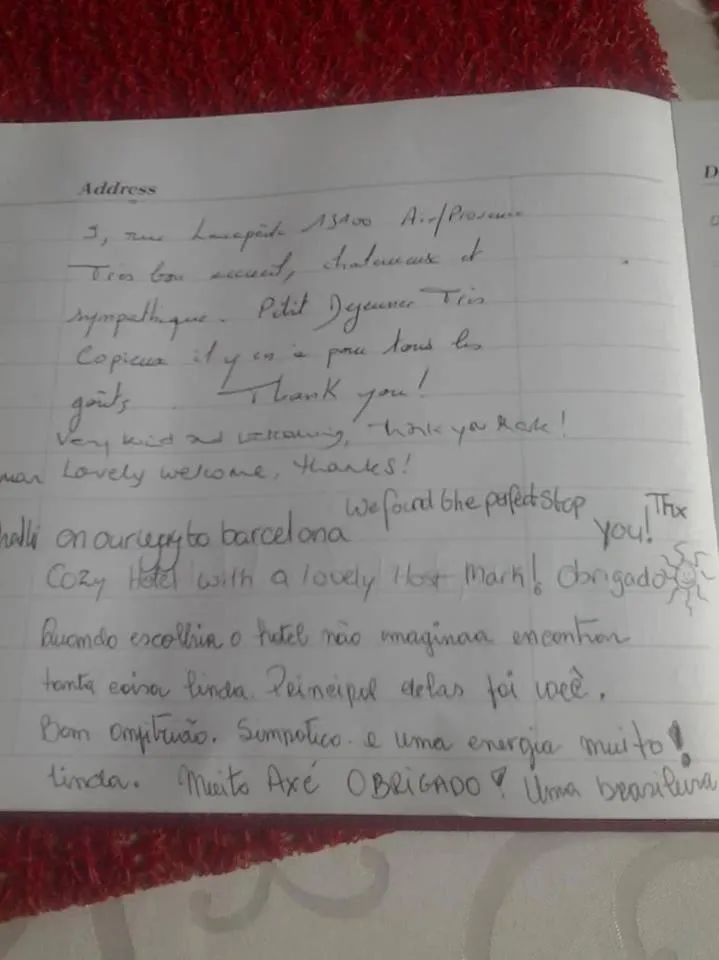 Address
D
9, rue Lacepède 13100 Aix/Provence
Très bon accueil, chaleureux et
sympathique. Petit Dejeuner Très
Copieux il y en a pour tous les
goûts Thank you!
Very kind and welcoming, thank you Mark!
man Lovely welcome, thanks!
We found the perfect stop
on our way to barcelona
Thx
You!
Cozy Hotel with a lovely Host Mark! Obrigado
Quando escolhia o hotel não imaginaa encontrar
tanta coisa linda. Principal delas foi você.
Bom anfitrião. Simpatico. e uma energia muito!
linda. Muito Axé OBRIGADO! Uma brasileira